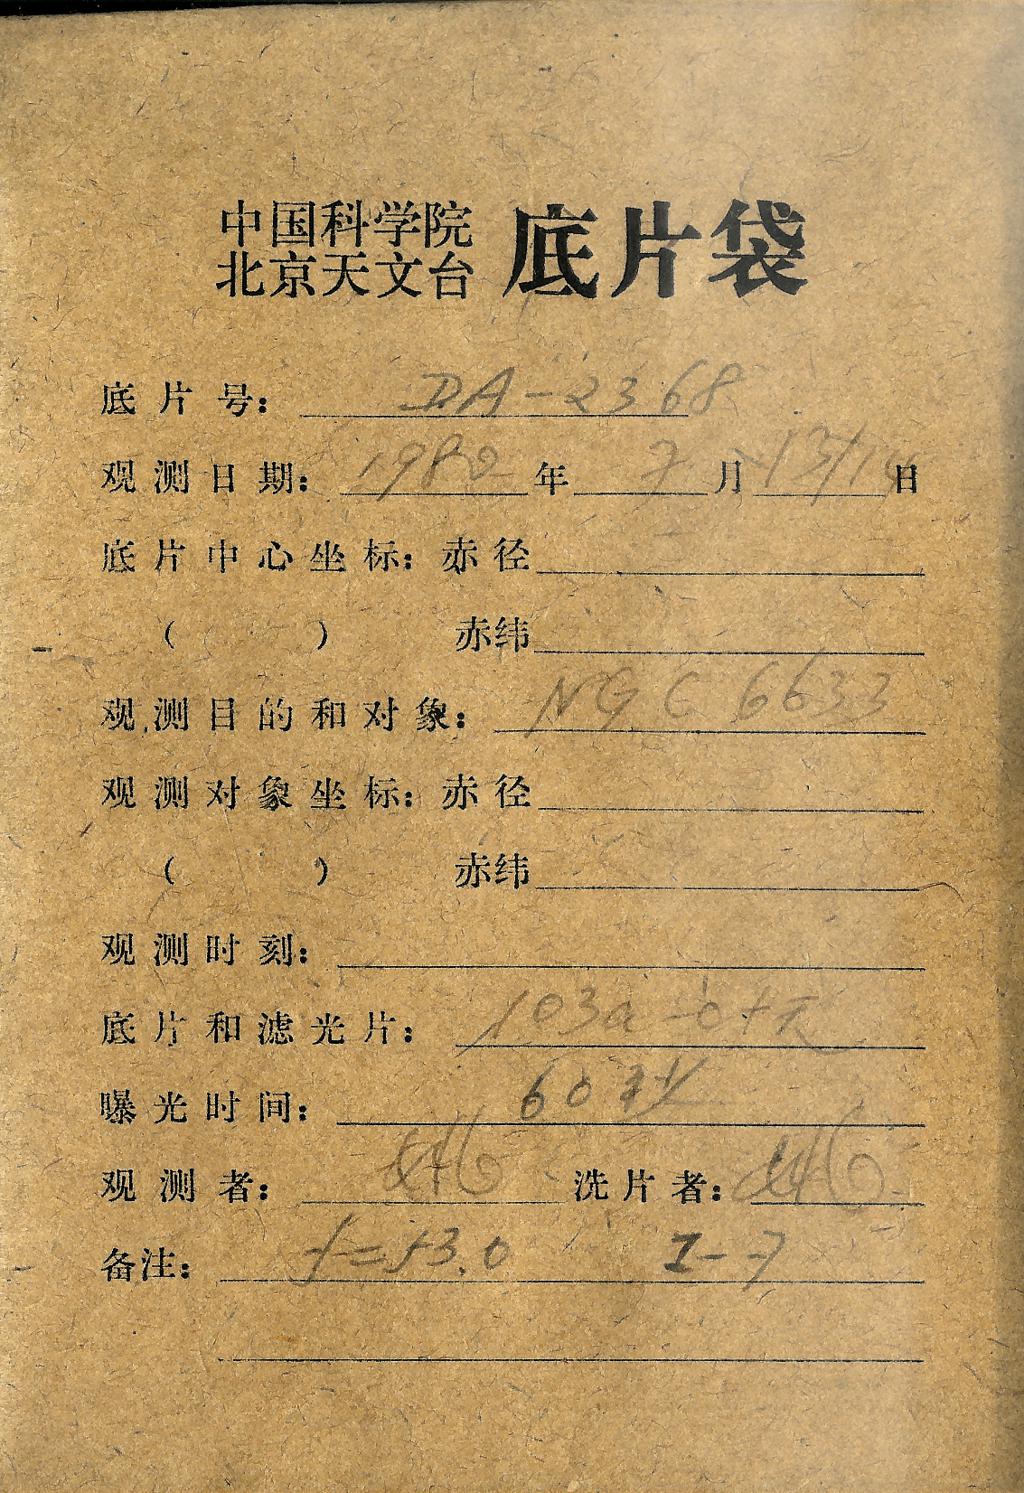 中国科学院
北京天文台 底片袋
底片号: DA-2368
观测日期: 1982年 7月 13/14日
底片中心坐标: 赤径
( ) 赤纬
观测目的和对象: NGC 6633
观测对象坐标: 赤径
( ) 赤纬
观测时刻:
底片和滤光片: 103a-0+无
曝光时间: 60秒
观测者: 洗片者:
备注: f=53.0 I-7